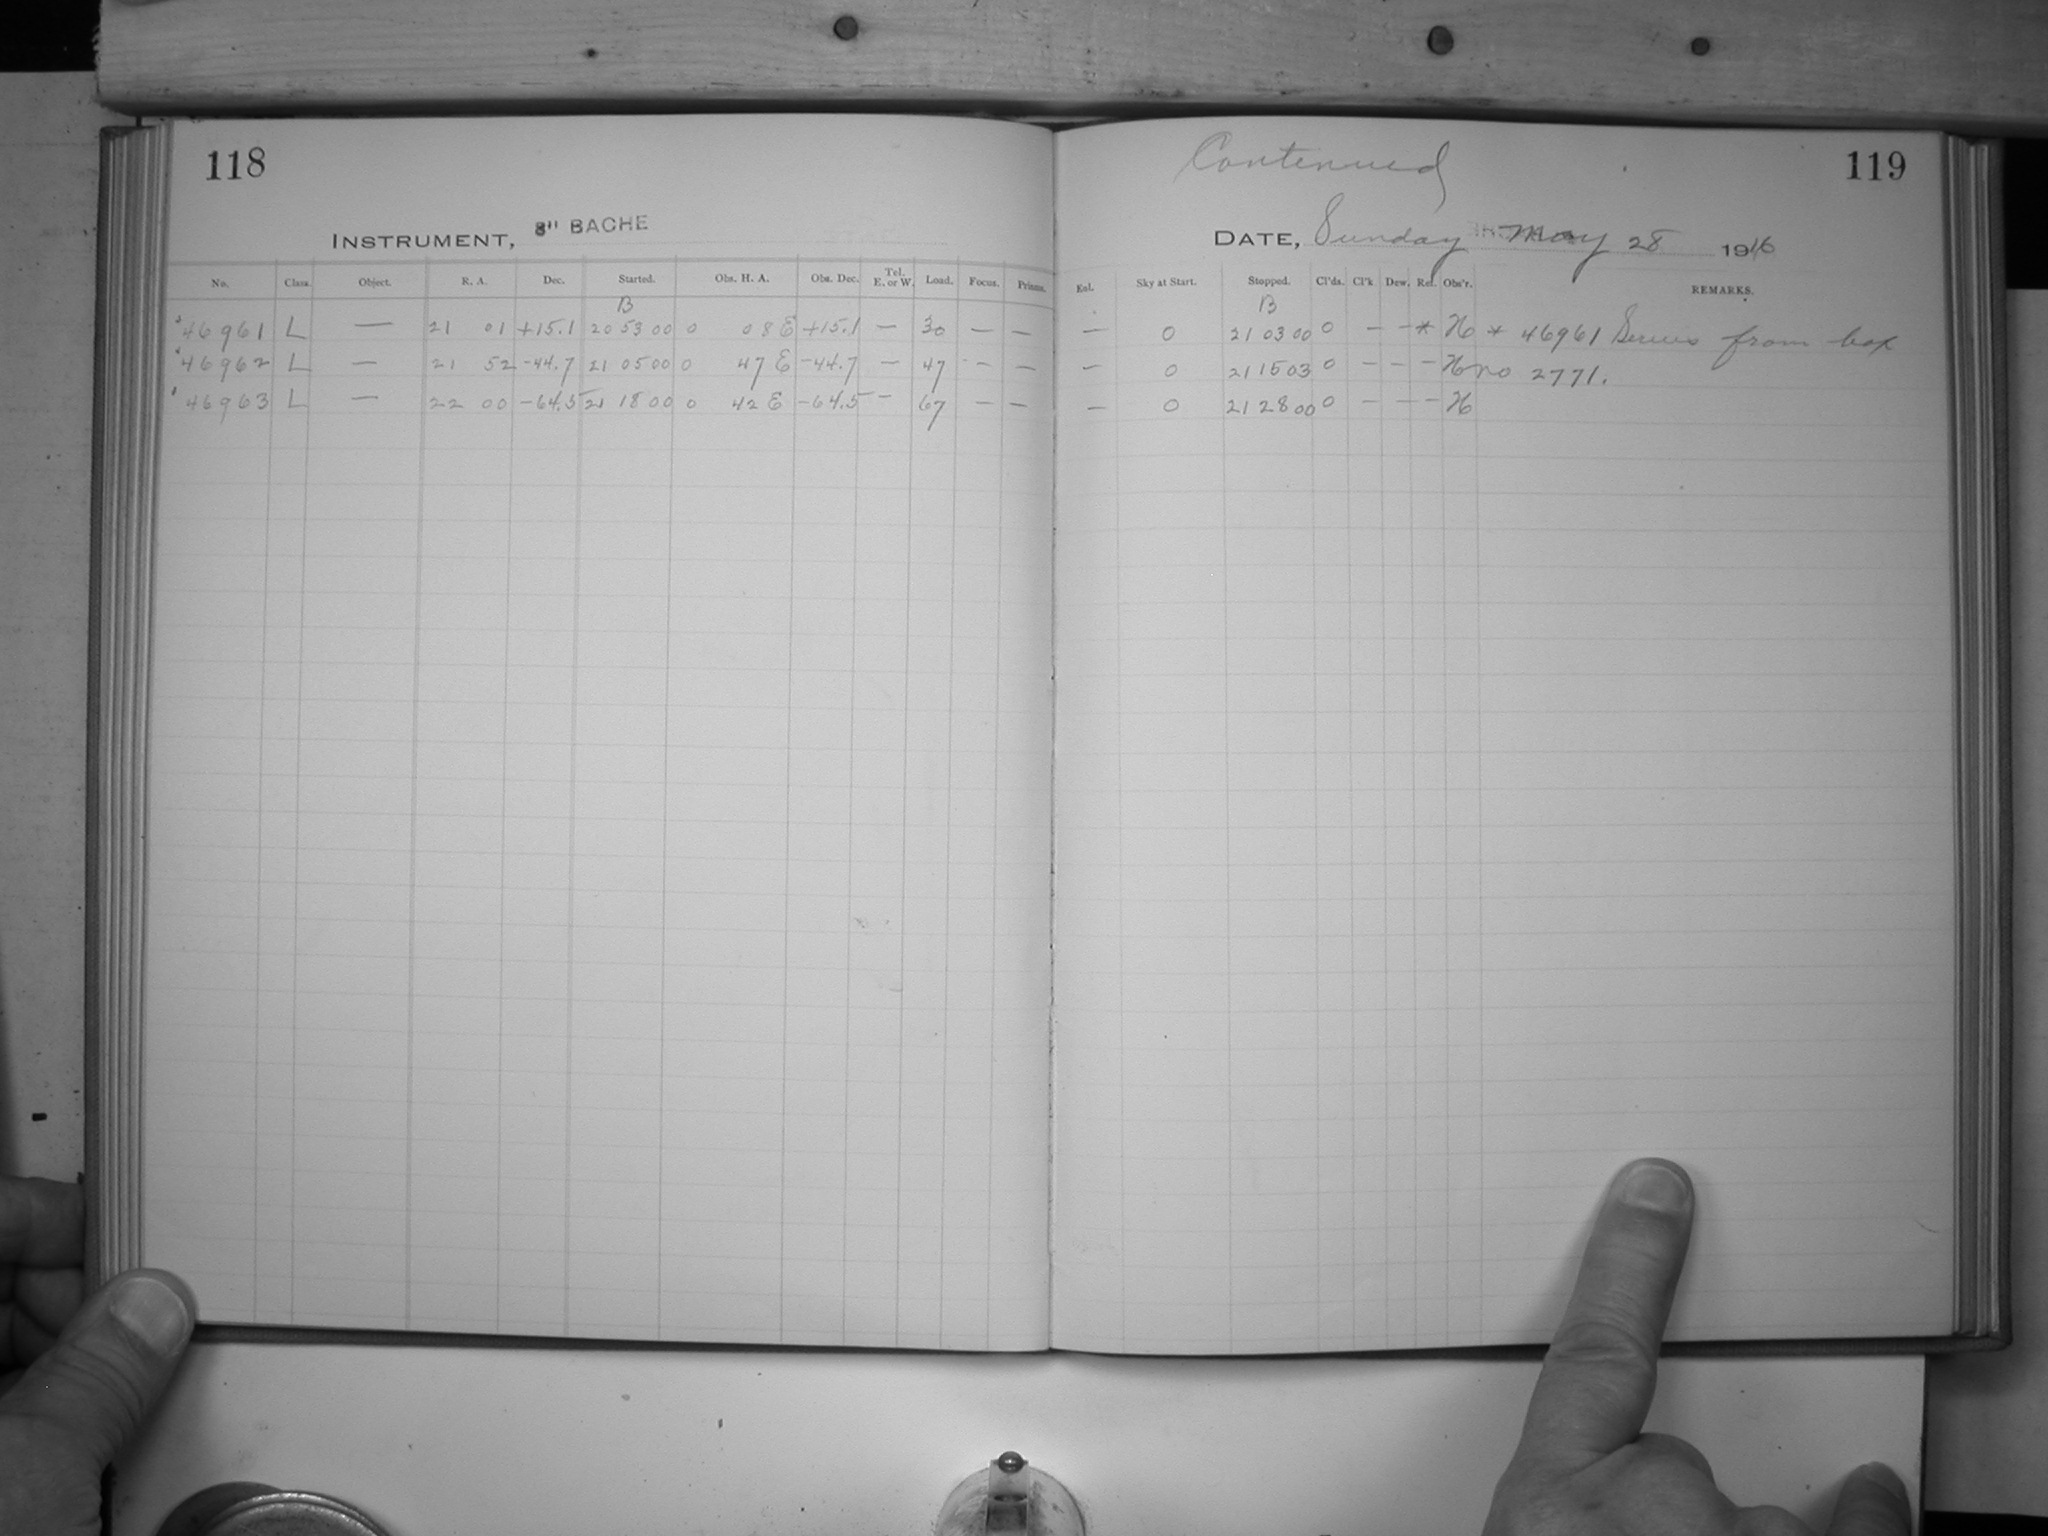 118
INSTRUMENT, 8" BACHE
No. Class. Object. R. A. Dec. Started. Obs. H. A. Obs. Dec. Tel. E. or W. Load. Focus. Prisms.
B
46961 L — 21 01 +15.1 20 53 00 0 08 E +15.1 — 30 — —
46962 L — 21 52 -44.7 21 05 00 0 47 E -44.7 — 47 — —
46963 L — 22 00 -64.5 21 18 00 0 42 E -64.5 — 67 — —
Continued
119
DATE, Sunday May 28 1916
Enl. Sky at Start. Stopped. Cl'ds. Cl'k Dew. Ref. Obs'r. REMARKS.
B
— 0 21 03 00 0 — — * H * 46961 from box
— 0 21 15 03 0 — — — H no 2771.
— 0 21 28 00 0 — — — H